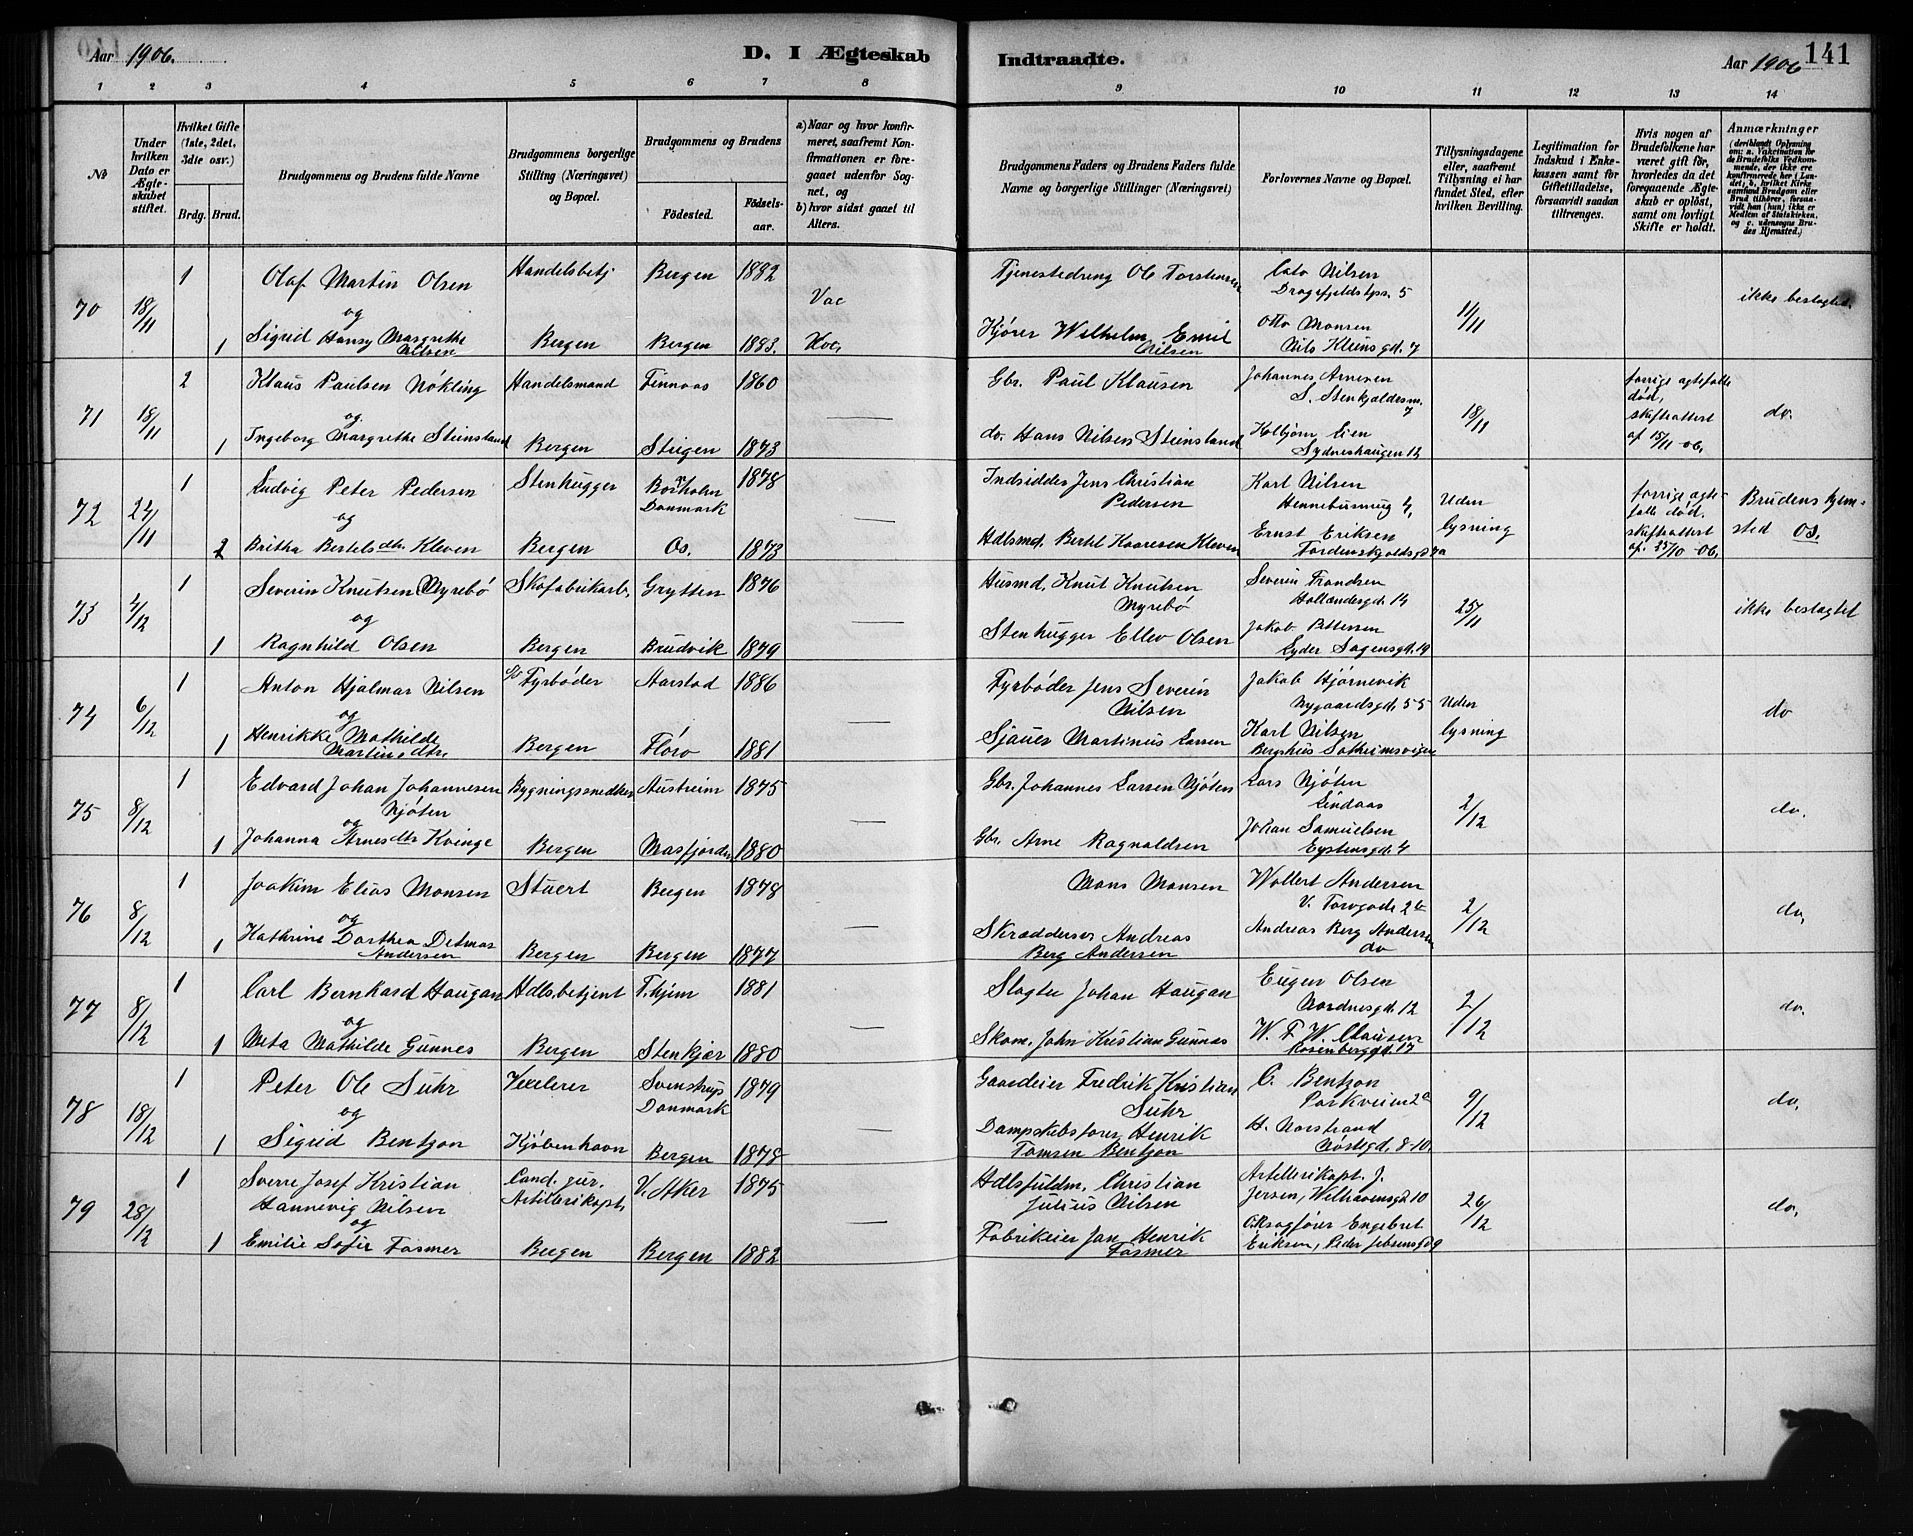 Aar 1906.
D. I Ægteskab
Indtraadte.
Aar 1906
141
1 2 3 4 5 6 7 8 9 10 11 12 13 14
No
Under hvilken Dato er Ægteskabet stiftet.
Hvilket Gifte (1ste, 2det, 3die osv.)
Brdg. Brud.
Brudgommens og Brudens fulde Navne
Brudgommens borgerlige Stilling (Næringsvei) og Bopæl.
Brudgommens og Brudens
Fødested.
Fødselsaar.
a) Naar og hvor konfirmeret, saafremt Konfirmationen er foregaaet udenfor Sognet, og
b) hvor sidst gaaet til Alters.
Brudgommens Faders og Brudens Faders fulde Navne og borgerlige Stillinger (Næringsvei)
Forlovernes Navne og Bopæl.
Tillysningsdagene eller, saafremt Tillysning ei har fundet Sted, efter hvilken Bevilling.
Legitimation for Indskud i Enkekassen samt for Giftetilladelse, forsaavidt saadan tiltrænges.
Hvis nogen af Brudefolkene har været gift før, hvorledes da det foregaaende Ægteskab er opløst, samt om lovligt Skifte er holdt.
Anmærkninger (deriblandt Oplysning om: a. Vakcination for de Brudefolks Vedkommende, der ikke ere konfirmerede her i Landet; b. hvilket Kirkesamfund Brudgom eller Brud tilhører, forsaavidt han (hun) ikke er Medlem af Statskirken, og c. udensogns Brudes Hjemsted.)
70 18/11 1 Olaf Martin Olsen Handelsbetj Bergen 1882 Vac Tjenestedreng Ole Torstensen Cato Nilsen
Dragefjeldstpr. 5 11/11 ikke beslagtet.
og
1 Sigrid Hansy Margrethe Nilsen Bergen Bergen 1883. Kjører Wilhelm Emil Nilsen Otto Monsen
Nils Kleims gd. 7
71 18/11 2 Klaus Paulsen Nøkling Handelsmand Finnaas 1860 Gbr. Paul Klausen Johannes Arnesen
18/11 forrige ægtefælle død, skifteattest af 15/11 -06. do.
og
1 Ingeborg Margrethe Steinsland Bergen Steigen 1873 do. Hans Nilsen Steinsland Kolbjørn Eien
Sydneshaugen 12
72 24/11 1 Ludvig Peter Pedersen Stenhugger Bornholm Danmark 1878 Indsidder Jens Christian Pedersen Karl Nilsen
4, Uden lysning forrige ægtefælle død. skifteattest af. 25/10 -06. Brudens hjemsted Os.
og
2 Britha Bertelsdtr. Kleven Bergen Os. 1873 Hdlsmd. Bertel Kaaresen Kleven Ernst Eriksen
Tordenskjoldsgd 7a
73 4/12 1 Severin Knutsen Myrebø Skofabrikarb. Grytten 1876 Husmd. Knut Knutsen Myrebø Severin Frandsen
Hollændergd. 14 25/11 ikke beslagtet
og
1 Ragnhild Olsen Bergen Brudvik 1879 Stenhugger Ellev Olsen Jakob Pettersen
Lyder Sagensgd. 19
74 6/12 1 Anton Hjalmar Nilsen Fyrbøder Aarstad 1886 Fyrbøder Jens Severin Nilsen Jakob Hjørnevik
Nygaardsgd. 55 Uden lysning do
og
1 Henrikke Mathilde Martinsdtr. Bergen Florø 1881 Sjauer Martinus Larsen Karl Nilsen
Bergshus Solheimsvigen
75 8/12 1 Edvard Johan Johannesen Njøten Bygningssnedker Austreim 1875 Gbr. Johannes Larsen Njøten Lars Njøten
Lindaas 2/12 do.
og
1 Johanna Arnesdtr Kvinge Bergen Masfjorden 1880 Gbr. Arne Ragnaldsen Johan Samuelsen
Eystensgd. 4
76 8/12 1 Joakim Elias Monsen Stuert Bergen 1878 Mons Monsen Wollert Andersen
V. Torvgade 2 2/12 do,
og
1 Kathrine Dorthea Detmar Andersen Bergen Bergen 1877 Skrædders. Andreas Berg Andersen Andreas Berg Andersen
do
77 8/12 1 Carl Bernhard Haugan Hdls.betjent T.hjem 1881 Slagter Johan Haugan Eugen Olsen
Nordnesgd. 12 2/12 do.
og
1 Meta Mathilde Gunnes Bergen Stenkjær 1880 Skom. John Kristian Gunnes W. F. W. Clausen
Rosenberggd. 17
78 18/12 1 Peter Ole Suhr Vexelerer Svenstrup Danmark 1879 Gaardeier Fredrik Kristian Suhr C. Bentzon
Parkveien 2a 9/12 do,
og
1 Sigrid Bentzon Kjøbenhavn Bergen 1878 Dampskibsfører Henrik Tomsen Bentzon H. Norstrand
Nøstegd. 8-10.
79 28/12 1 Sverre Josef Kristian Hannevig Nilsen Cand. jur. Artillerikapt. V. Aker 1875 Hdlsfuldm. Christian Julius Nilsen Artillerikapt. J.
Jersen, Welhavensgd 10 26/12 do,
og
1 Emilie Sofie Fasmer Bergen Bergen 1882 Fabrikeier Jan Henrik Fasmer O.R.sagfører Engebret
Eriksen, Peder Jebsensgd 9